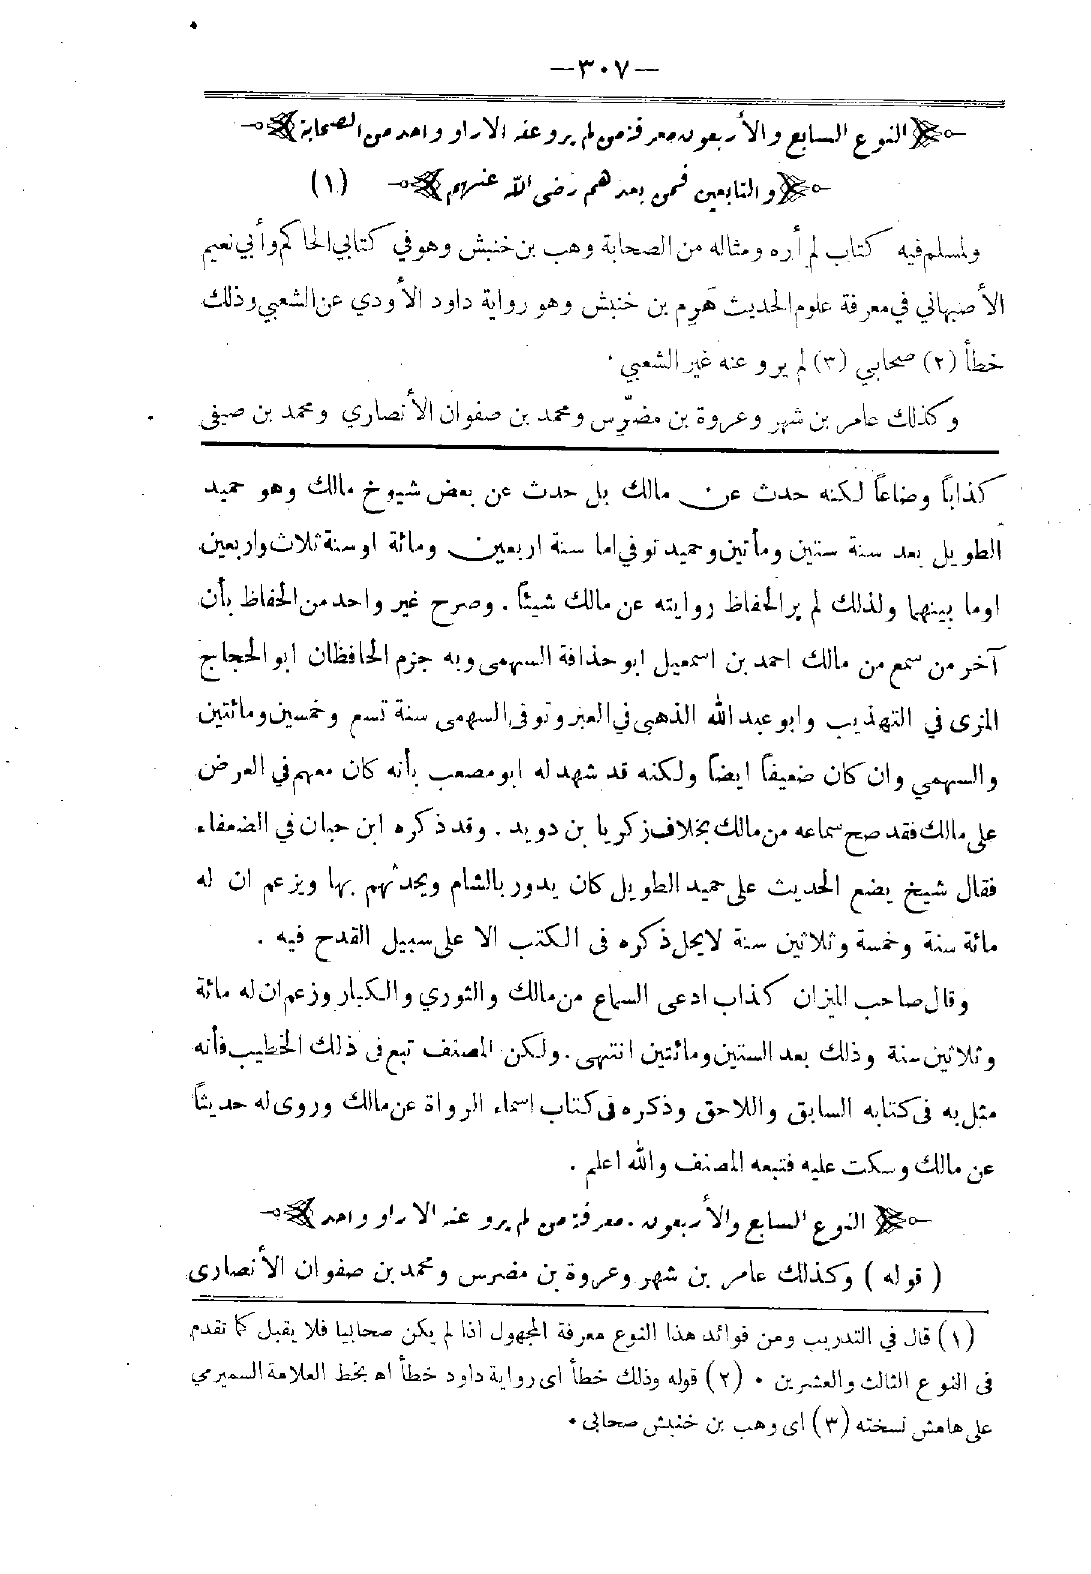 —٣٠٧—
النوع السابع والأربعون معرفة من لم يرو عنه الا راو واحد من الصحابة
والتابعين فمن بعدهم رضى الله عنهم (١)
ولمسلم فيه كتاب لم أره ومثاله من الصحابة وهب بن خنبش وهو في كتابي الحاكم وأبي نعيم
الأصبهاني في معرفة علوم الحديث هَرِم بن خنبش وهو رواية داود الأودي عن الشعبي وذلك
خطأ (٢) صحابي (٣) لم يرو عنه غير الشعبي .
وكذلك عامر بن شهر وعروة بن مضرّس ومحمد بن صفوان الأنصاري ومحمد بن صيفى
كذاباً وضاعاً لكنه حدث عن مالك بل حدث عن بعض شيوخ مالك وهو حميد
الطويل بعد سنة ستين ومأتين وحميد توفي اما سنة اربعين ومائة او سنة ثلاث واربعين
اوما بينهما ولذلك لم ير الحفاظ روايته عن مالك شيئاً . وصرح غير واحد من الحفاظ بأن
آخر من سمع من مالك احمد بن اسمعيل ابو حذافة السهمى وبه جزم الحافظان ابو الحجاج
المزى في التهذيب وابو عبد الله الذهبى في العبر وتوفى السهمى سنة تسع وخمسين ومائتين
والسهمي وان كان ضعيفاً ايضاً ولكنه قد شهد له ابو مصعب بأنه كان معهم في العرض
على مالك فقد صح سماعه من مالك بخلاف زكريا بن دويد . وقد ذكره ابن حبان في الضعفاء
فقال شيخ يضع الحديث على حميد الطويل كان يدور بالشام ويحدثهم بها ويزعم ان له
مائة سنة وخمسة وثلاثين سنة لايحل ذكره فى الكتب الا على سبيل القدح فيه .
وقال صاحب الميزان كذاب ادعى السماع من مالك والثوري والكبار وزعم ان له مائة
وثلاثين سنة وذلك بعد الستين ومائتين انتهى . ولكن المصنف تبع فى ذلك الخطيب فأنه
مثل به فى كتابه السابق واللاحق وذكره فى كتاب اسماء الرواة عن مالك وروى له حديثاً
عن مالك وسكت عليه فتبعه المصنف والله اعلم .
النوع السابع والأربعون . معرفة من لم يرو عنه الا راو واحد
( قوله ) وكذلك عامر بن شهر وعروة بن مضرس ومحمد بن صفوان الأنصارى
(١) قال في التدريب ومن فوائد هذا النوع معرفة المجهول اذا لم يكن صحابيا فلا يقبل كما تقدم
فى النوع الثالث والعشرين . (٢) قوله وذلك خطأ اى رواية داود خطأ اه بخط العلامة السميرمي
على هامش نسخته (٣) اى وهب بن خنبش صحابى .